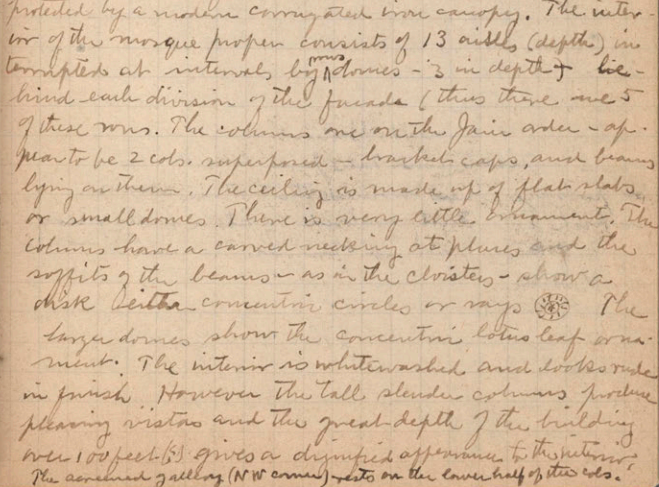 protected by a modern corrugated iron canopy. The inter-
ior of the mosque proper consists of 13 aisles (depth) in
terrupted at intervals by rows domes - 3 in depth + be-
hind each division of the facade (thus there are 5
of these rows. The columns are on the Jain order - ap-
pear to be 2 cols. superposed - bracket caps, and beams
lying on them. The ceiling is made up of flat slabs
or small domes. There is very little ornament. The
columns have a carved necking at places and the
soffits of the beams - as in the cloisters - show a
disk either concentric circles or rays The
larger domes show the concentric lotus leaf orna-
ment. The interior is whitewashed and looks rude
in finish. However the tall slender columns produce
pleasing vistas and the great depth of the building
over 100 feet (?) gives a dignified appearance to the interior.
The screened gallery (NW corner) rests on the lower half of the cols.